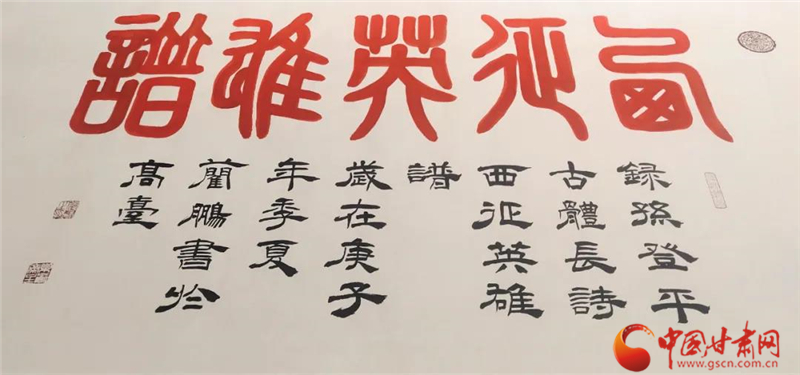 西征英雄譜
録孫登平
古體長詩
西征英雄
譜
歲在庚子
年季夏
藺鵬書於
高臺
中国甘肃网
www.gscn.com.cn